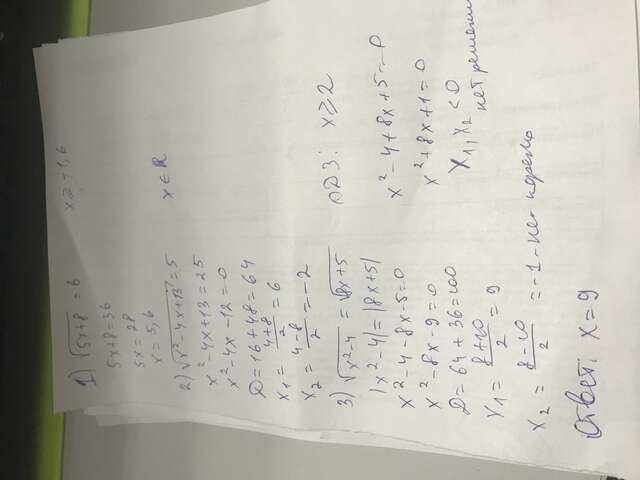 1) √5x+8 = 6 x ≥ -1,6
5x+8=36
5x = 28
x = 5,6
2) √x²-4x+13 = 5 x ∈ R
x²-4x+13=25
x²-4x-12=0
D=16+48=64
x₁ = 4+8/2 = 6
x₂ = 4-8/2 = -2
3) √x²-4 = √8x+5 ОДЗ: x ≥ 2
|x²-4|=|8x+5|
x²-4-8x-5=0 x²-4+8x+5=0
x²-8x-9=0 x²+8x+1=0
D=64+36=100 x₁,x₂ < 0
x₁ = 8+10/2 = 9 нет решений
x₂ = 8-10/2 = -1 - не корень
Ответ: x=9